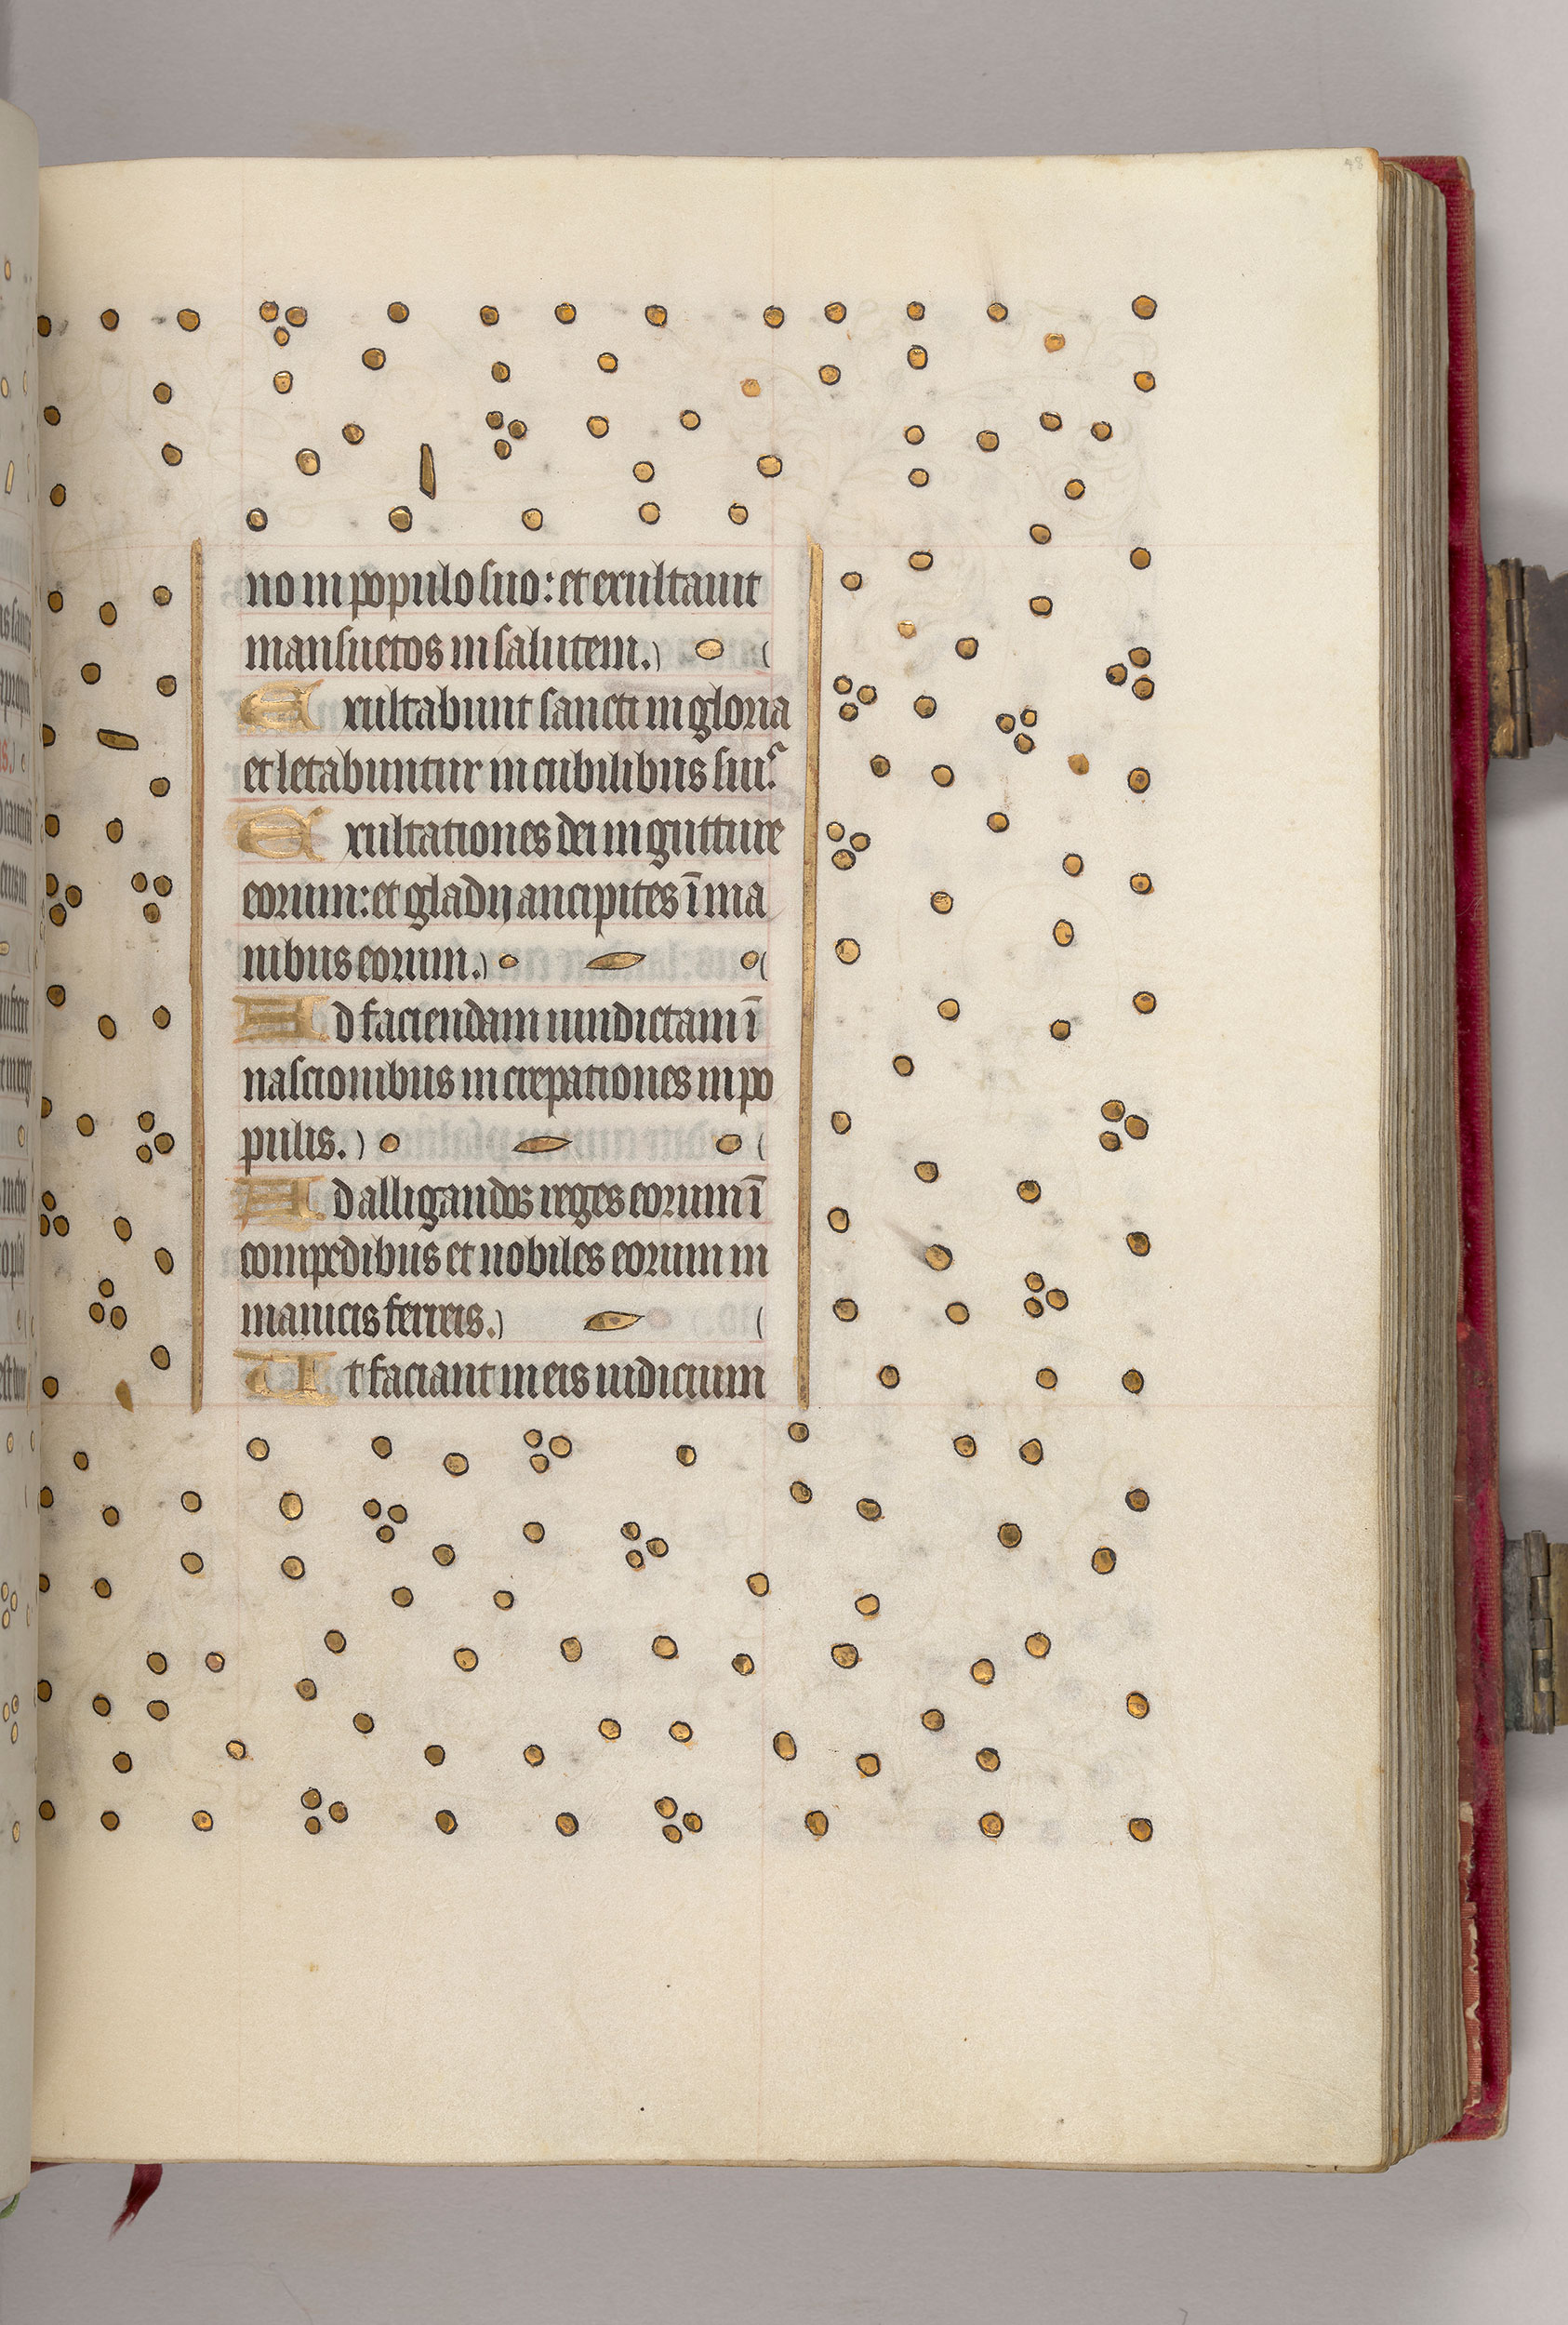 48
no in populo suo: et exultauit
mansuetos in salutem.
Exultabunt sancti in gloria
et letabuntur in cubilibus suis
Exultationes dei in gutture
eorum: et gladij ancipites ī ma
nibus eorum.
Ad faciendam uindictam ī
nascionibus increpationes in po
pulis.
Ad alligandos reges eorum ī
compedibus et nobiles eorum in
manicis ferreis.
Ut faciant in eis iudicium